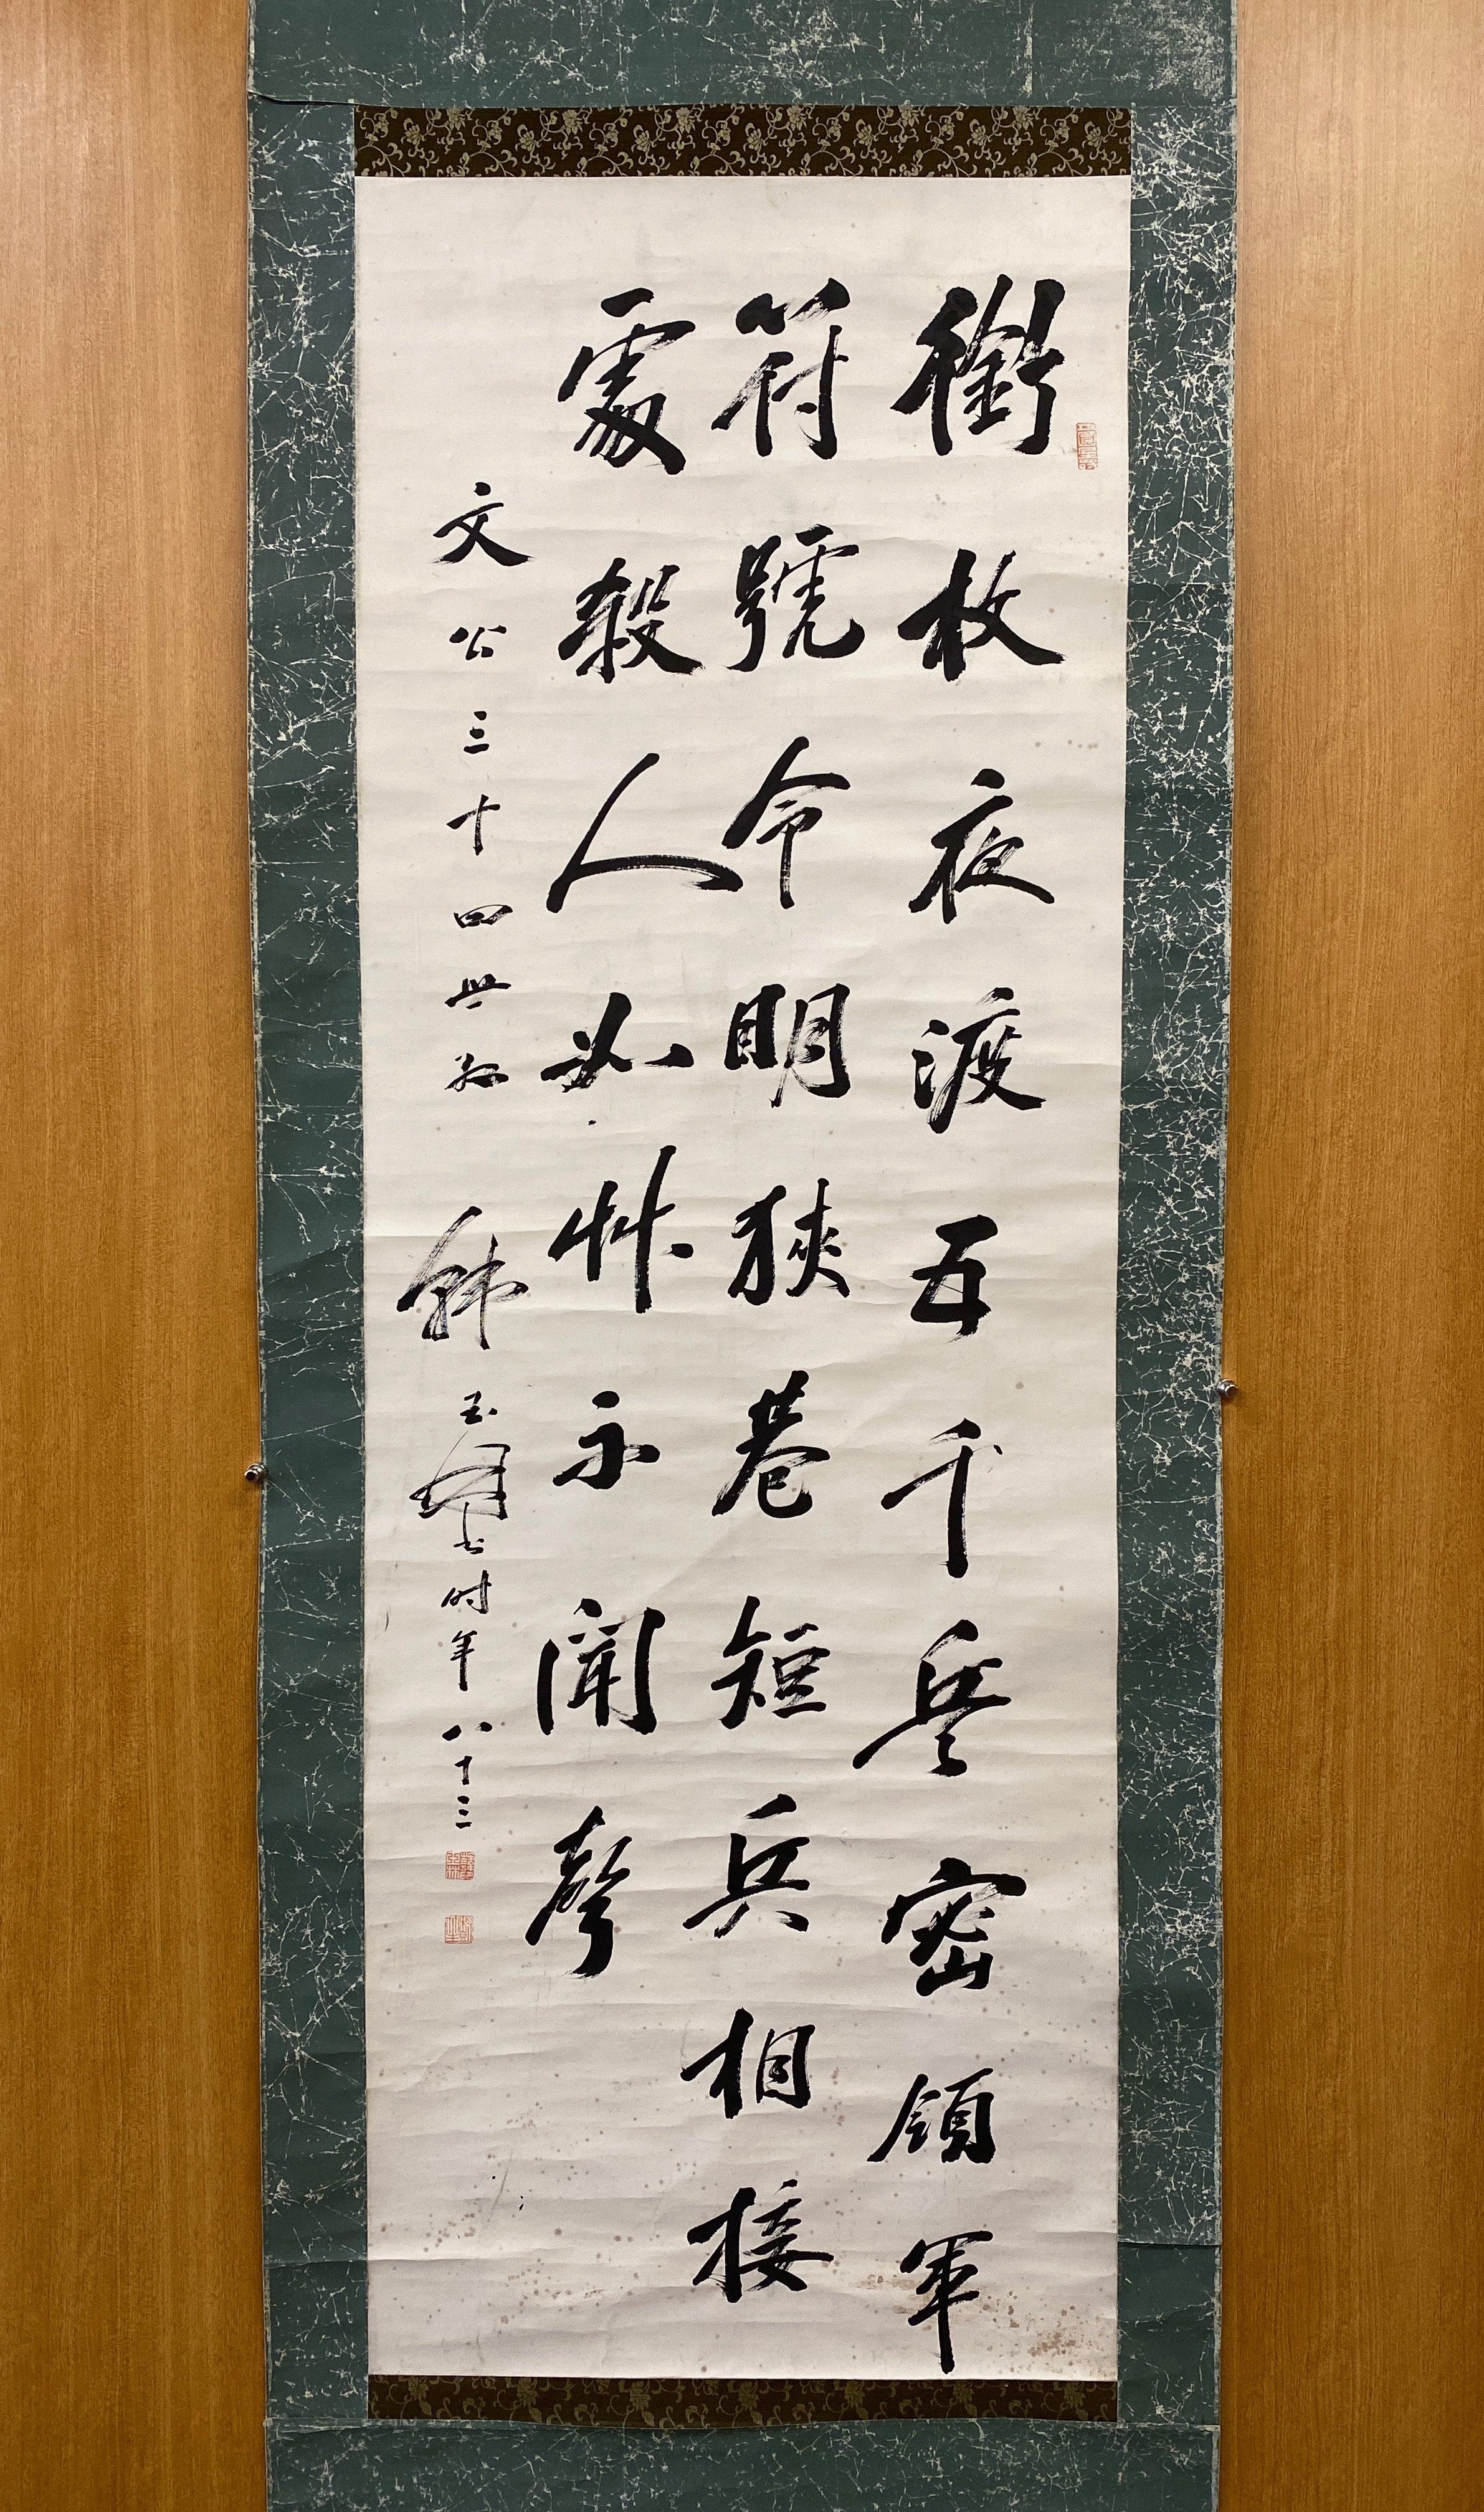 銜枚夜渡五千兵密領軍
符號令明狹巷短兵相接
處殺人如艸不聞聲
文公三十四世孫 韓玉 书时年八十三